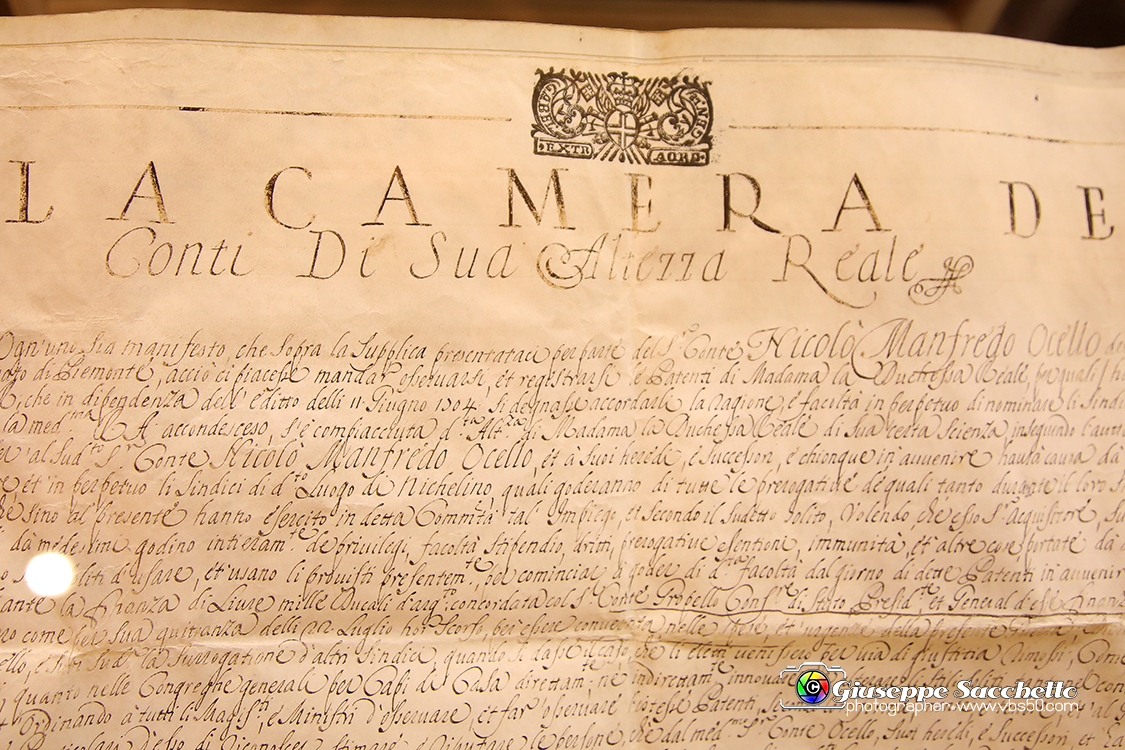 GABEL GENER
EXTR AORD
LA CAMERA DE
Conti Di Sua Altezza Reale
Ogn'uno sia manifesto, che sopra la supplica presentataci per parte del Sr. Conte Nicolò Manfredo Ocello de
di Piemonte, acciò ci piacesse mandar osservarsi, et registrarsi le Patenti di Madama la Duchessa Reale, per quali
che in dipendenza dell'editto delli 11 Giugno 1704. si degnasse accordarli la ragione, e facoltà in perpetuo di nominare li Sindici
la med.ma R.A. accondesceso, s'è compiacciuta d.ta Alt.za di Madama la Duchessa Reale di sua certa scienza, inseguendo l'autto
al sud.to Sr. Conte Nicolò Manfredo Ocello, et à suoi heredi, e successori, e chionque in avvenire havrà causa da
et in perpetuo li Sindici di d.to Luogo di Nichelino, quali goderanno di tutte le prerogative de quali tanto durante il loro
sino al presente hanno esercito in detta Commtà tal Impiego, et secondo il sudetto solito, Volendo che esso Sr. Acquisitore,
da medesimi godino intieram.te de privilegi, facoltà stipendio, dritti, prerogative esentioni, immunità, et altre cose portate dà
soliti d'usare, et usano li provisti presentem.te per cominciar à goder di d.ta facoltà dal giorno di dette Patenti in avvenire
la finanza di Livre mille Ducali d'arg.to concordata col Sr. Conte Gropello Cons.re di Stato Presid.te et General d'esse finanze
come per sua quittanza delli 22 Luglio hor scorso, per essere convertita nelle spese, et urgenze della presente guerra,
la surrogatione d'altri Sindici, quando si dasse il caso, che li eletti venissero per via di giustitia rimossi,
quanto nelle Congreghe generali per Capi di Casa direttam.te ne indirettam.te innovare
ordinando a tutti li Mag.ti, e Ministri d'osservare, et far osservare
le persone, che dal med.mo Sr. Conte Ocello, suoi heredi, e successori, et
Giuseppe Sacchetto
photographer-www.vbs50.com